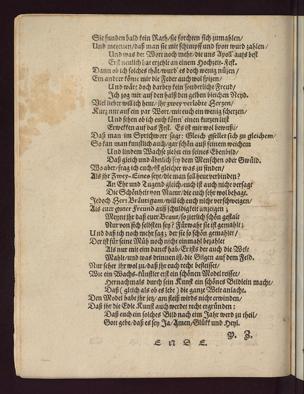 Sie funden bald kein Rath/sie forchten sich zumahlen/
Und meynten/daß man sie mit schimpff und spott wurd zahlen/
Und was der Wort noch mehr/die uns Apoll' aufs best
Erst neulich hat erzehlt an einem Hochzeit-Fest.
Dann ob ich solches thät/wurd' es doch wenig nützen/
Ein ander könne mir die Feder auch wol spitzen/
Und wär' doch darbey kein sonderliche Freud/
Ich zög mir auf den halß den gelben bleichen Neyd.
Viel lieber will ich heut/ihr zwey verliebte Hertzen/
Kurz nur auf ein par Wort/mit euch ein wenig schertzen/
Und sehen ob ich euch könn' einen kurtzen lust
Erwecken auf das Fest. Es ist mir wol bewust/
Daß man im Sprichwort sagt: Gleich gesellet sich zu gleichem/
So kan man kunstlich auch/gar schön auß seinem weichem
Und linden Wachse zieher ein feines Ebenbild/
Daß gleich und ähnlich sey dem Menschen oder Gwild.
Wo aber frag ich euch/ist gleicher was zu finden/
Als ihr Zwey-Eines seyt/die man soll heut verbinden?
An Ehr und Tugend gleich/euch ist auch nicht versagt
Die Schönheit von Natur/die euch sehr wol behagt.
Jedoch Herr Bräutigam/will ich euch nicht verschweigen/
Als euer guter Freund aus schuldigkeit anzeigen;
Meynt ihr daß euer Braut/so zierlich schön gestalt
Nur von sich selbsten sey? Fürwahr sie ist gemahlt;
Und daß ich noch mehr sag; der sie so schön gemahlet/
Der ist für seine Müh noch nicht einmahl bezahlet
Als nur mit eim danck hab/Er ists der auch die Welt
Mahlt/und was drinnen ist/die Gilgen auf dem Feld.
Nur seher ihr wol zu/daß ihr euch recht bereitet/
Wie ein Wachs-künstler erst ein schönen Model reisset/
Hernachmals durch sein Kunst ein schönes Bildlein macht/
Daß (gleich als ob es lebt) die gantze Welt anlacht.
Den Model habt ihr schon/am fleiß wirds nicht erwinden/
Daß ihr die Edle Kunst auch werdet recht ergründen:
Daß euch ein solches Bild nach ein Jahr werd zu theil/
Gott gebe/daß es sey Ja/Amen/Glükk und Heyl.
E N D E.